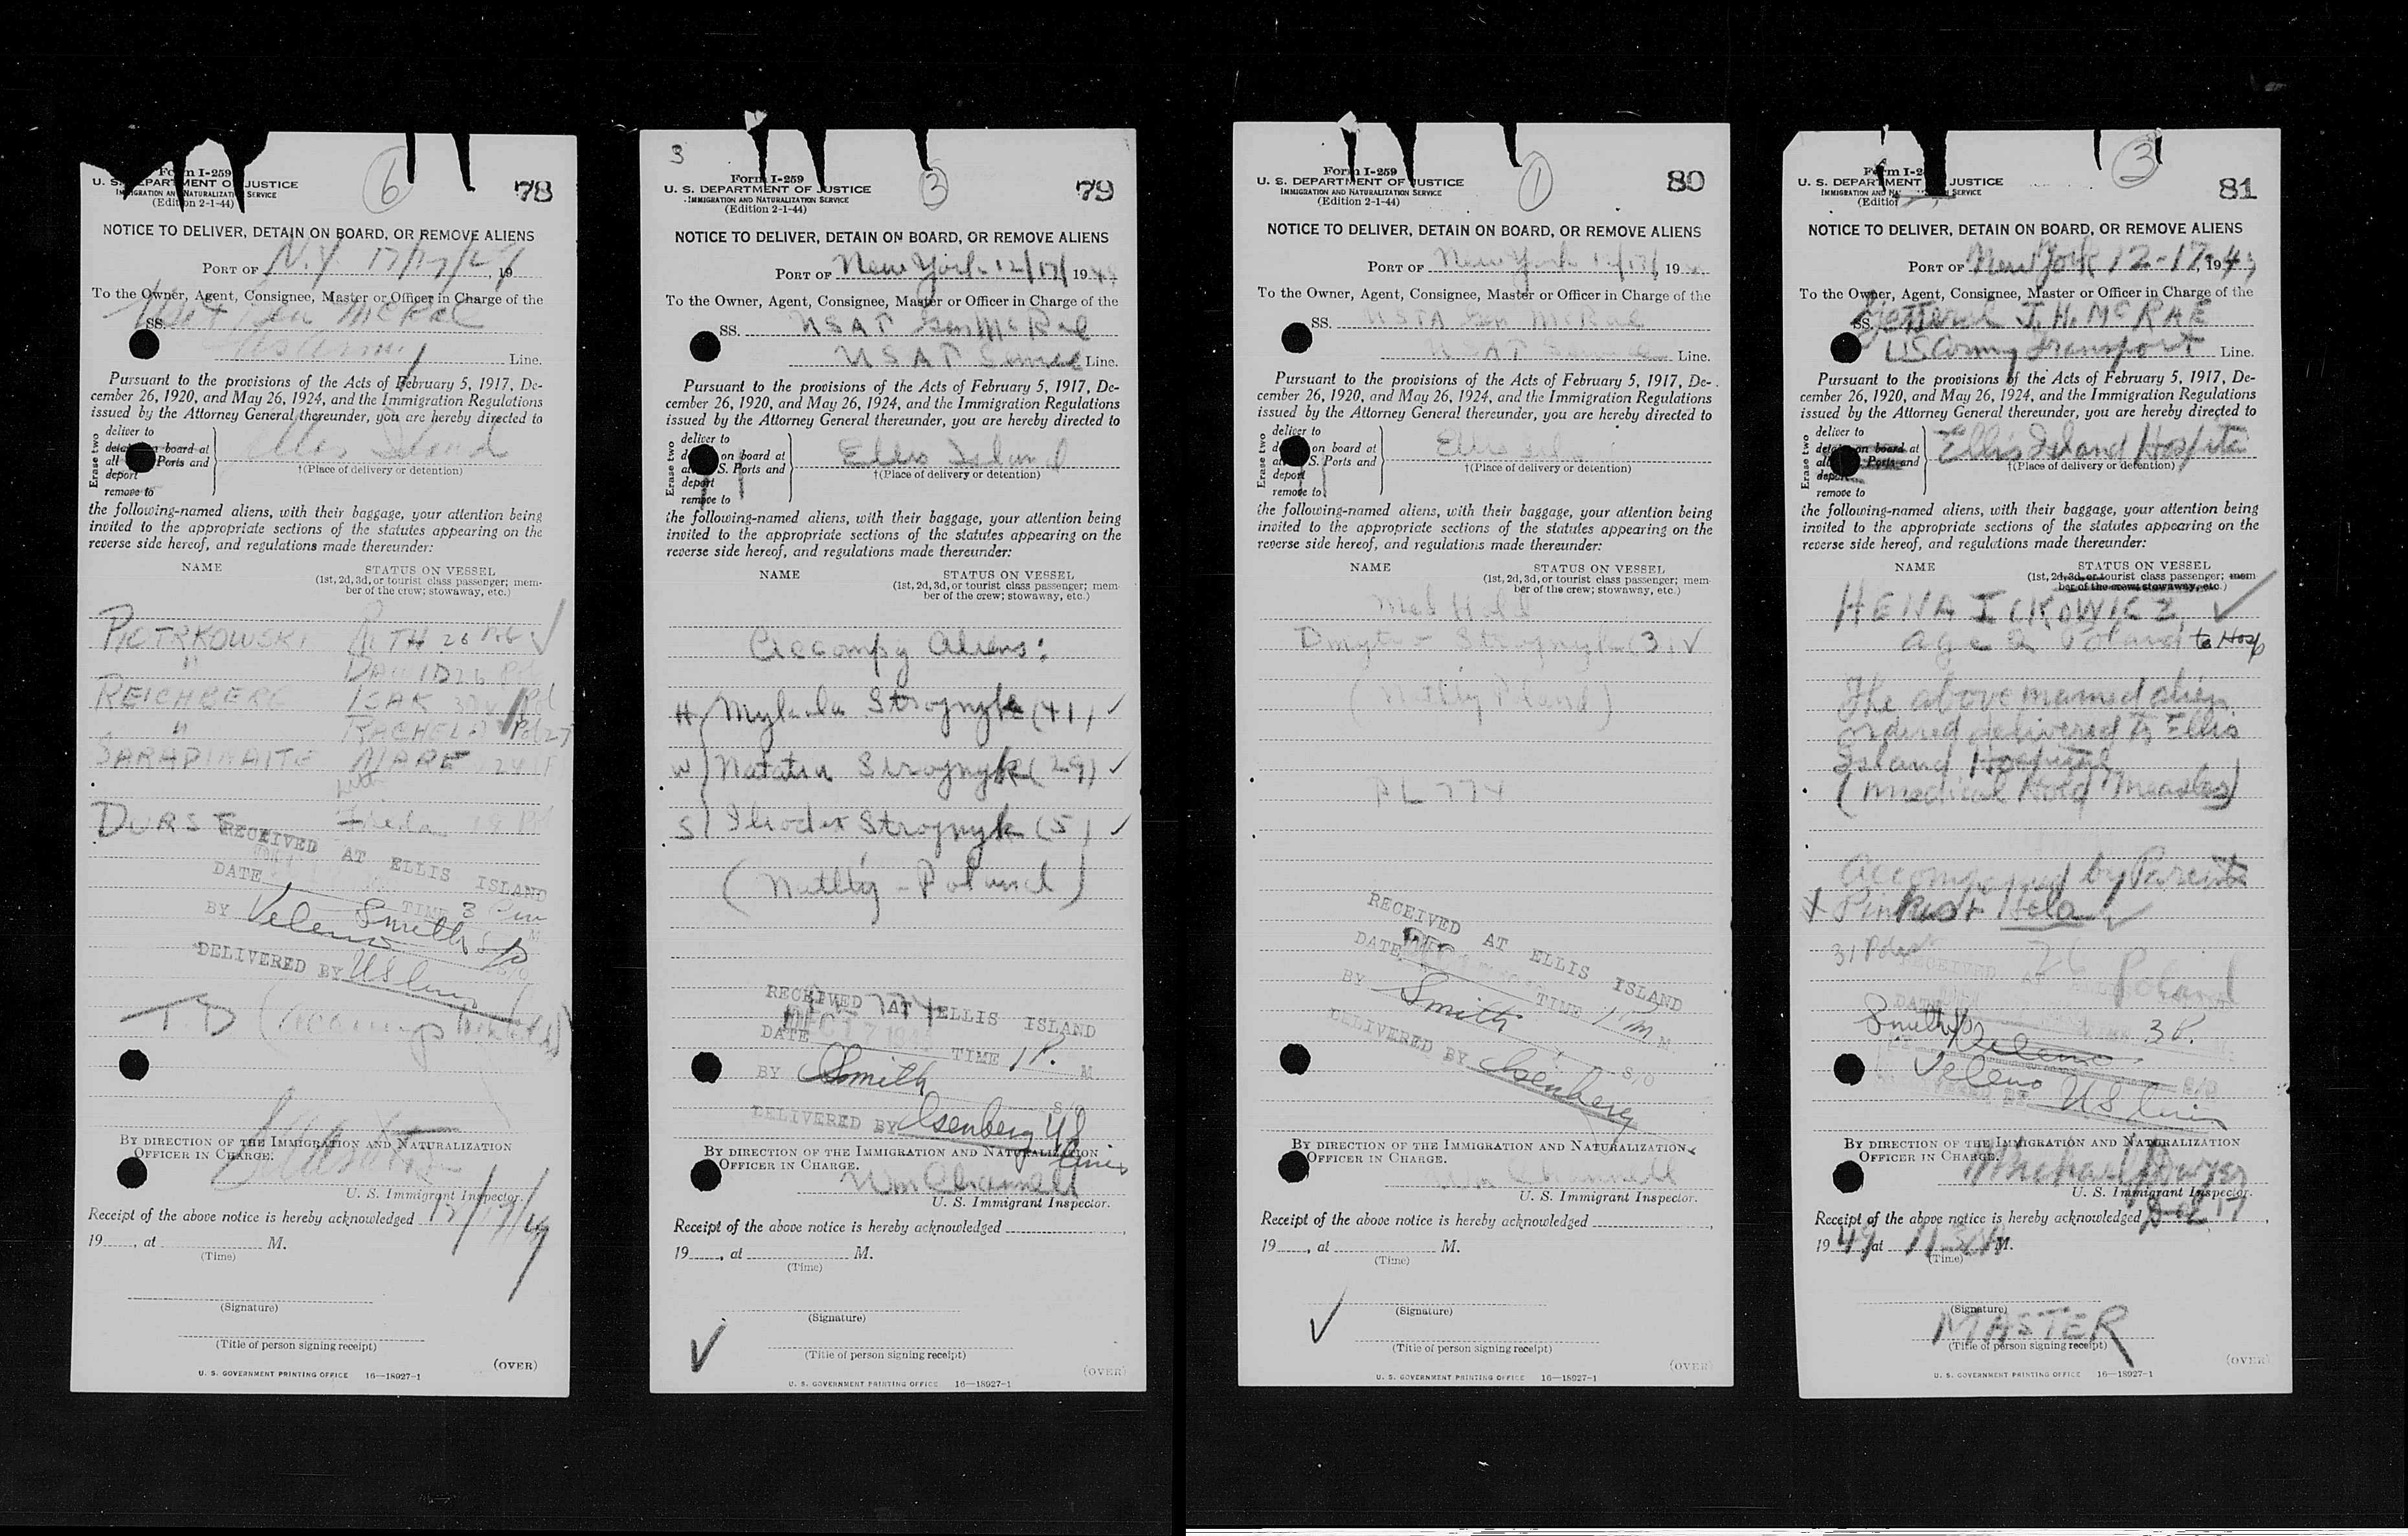 6
Form I-259
U. S. DEPARTMENT OF JUSTICE
IMMIGRATION AND NATURALIZATION SERVICE
(Edition 2-1-44)
78
NOTICE TO DELIVER, DETAIN ON BOARD, OR REMOVE ALIENS
PORT OF N.Y. 12/17/49, 19
To the Owner, Agent, Consignee, Master or Officer in Charge of the
SS. Gen McRae
US Army Line.
Pursuant to the provisions of the Acts of February 5, 1917, De-
cember 26, 1920, and May 26, 1924, and the Immigration Regulations
issued by the Attorney General thereunder, you are hereby directed to
Erase two
deliver to
detain on board at
all Ports and
deport
remove to
Ellis Island
†(Place of delivery or detention)
the following-named aliens, with their baggage, your attention being
invited to the appropriate sections of the statutes appearing on the
reverse side hereof, and regulations made thereunder:
NAME STATUS ON VESSEL
(1st, 2d, 3d, or tourist class passenger; mem-
ber of the crew; stowaway, etc.)
PIOTRKOWSKI RUTH 26 ✓
" DAWID 26 Pol
REICHBERG ISAK Pol
" RACHELA Pol 27
SARAPINAITE MARE 24
DURST Frieda 19
RECEIVED AT ELLIS ISLAND
DATE TIME 3 Pm
BY Veleno Smith
DELIVERED BY US Lines
TD
BY DIRECTION OF THE IMMIGRATION AND NATURALIZATION
OFFICER IN CHARGE.
U. S. Immigrant Inspector.
Receipt of the above notice is hereby acknowledged 12/17/49
19, at M.
(Time)
(Signature)
(Title of person signing receipt)
(OVER)
U. S. GOVERNMENT PRINTING OFFICE 16—18927-1
3
Form I-259
3
U. S. DEPARTMENT OF JUSTICE
IMMIGRATION AND NATURALIZATION SERVICE
(Edition 2-1-44)
79
NOTICE TO DELIVER, DETAIN ON BOARD, OR REMOVE ALIENS
PORT OF New York 12/17/ 1949
To the Owner, Agent, Consignee, Master or Officer in Charge of the
SS. USAT Gen McRae
USAT Service Line.
Pursuant to the provisions of the Acts of February 5, 1917, De-
cember 26, 1920, and May 26, 1924, and the Immigration Regulations
issued by the Attorney General thereunder, you are hereby directed to
Erase two
deliver to
on board at
S. Ports and
deport
remove to
Ellis Island
†(Place of delivery or detention)
the following-named aliens, with their baggage, your attention being
invited to the appropriate sections of the statutes appearing on the
reverse side hereof, and regulations made thereunder:
NAME STATUS ON VESSEL
(1st, 2d, 3d, or tourist class passenger; mem-
ber of the crew; stowaway, etc.)
Accompg Aliens:
H Mykola Strojnyk (41) ✓
W Natalia Strojnyk (29) ✓
S Iliodor Strojnyk (5) ✓
(Natlty - Poland)
RECEIVED AT ELLIS ISLAND
DATE DEC 17 1949 TIME 1 P. M.
BY Smith S/O
DELIVERED BY Isenberg US Lines
BY DIRECTION OF THE IMMIGRATION AND NATURALIZATION
OFFICER IN CHARGE.
Wm Channell
U. S. Immigrant Inspector.
Receipt of the above notice is hereby acknowledged
19, at M.
(Time)
(Signature)
✓
(Title of person signing receipt)
(OVER)
U. S. GOVERNMENT PRINTING OFFICE 16—18927-1
Form I-259
1
U. S. DEPARTMENT OF JUSTICE
IMMIGRATION AND NATURALIZATION SERVICE
(Edition 2-1-44)
80
NOTICE TO DELIVER, DETAIN ON BOARD, OR REMOVE ALIENS
PORT OF New York 12/17/, 19
To the Owner, Agent, Consignee, Master or Officer in Charge of the
SS. USTA Gen McRae
USAT Service Line.
Pursuant to the provisions of the Acts of February 5, 1917, De-
cember 26, 1920, and May 26, 1924, and the Immigration Regulations
issued by the Attorney General thereunder, you are hereby directed to
Erase two
deliver to
on board at
S. Ports and
deport
remove to
Ellis Isl
†(Place of delivery or detention)
the following-named aliens, with their baggage, your attention being
invited to the appropriate sections of the statutes appearing on the
reverse side hereof, and regulations made thereunder:
NAME STATUS ON VESSEL
(1st, 2d, 3d, or tourist class passenger; mem-
ber of the crew; stowaway, etc.)
Med Hold
Dmytro Strojnyk (3) ✓
(Natlty Poland)
PL 774
RECEIVED AT ELLIS ISLAND
DATE TIME 1 P M.
BY Smith S/O
DELIVERED BY Isenberg
BY DIRECTION OF THE IMMIGRATION AND NATURALIZATION
OFFICER IN CHARGE.
Wm Channell
U. S. Immigrant Inspector.
Receipt of the above notice is hereby acknowledged
19, at M.
(Time)
✓
(Signature)
(Title of person signing receipt)
(OVER)
U. S. GOVERNMENT PRINTING OFFICE 16—18927-1
3
U. S. DEPARTMENT JUSTICE
SERVICE
81
NOTICE TO DELIVER, DETAIN ON BOARD, OR REMOVE ALIENS
PORT OF New York 12-17, 1949
To the Owner, Agent, Consignee, Master or Officer in Charge of the
SS. General J. H. McRAE
US Army Transport Line.
Pursuant to the provisions of the Acts of February 5, 1917, De-
cember 26, 1920, and May 26, 1924, and the Immigration Regulations
issued by the Attorney General thereunder, you are hereby directed to
Erase two
deliver to
on board at
Ports and
deport
remove to
Ellis Island Hospital
†(Place of delivery or detention)
the following-named aliens, with their baggage, your attention being
invited to the appropriate sections of the statutes appearing on the
reverse side hereof, and regulations made thereunder:
NAME STATUS ON VESSEL
(1st, 2d, 3d, or tourist class passenger; mem
ber of the crew; stowaway, etc.)
HENA ICKOWICZ ✓
age 2 Poland to Hosp
The above named alien
ordered delivered to Ellis
Island Hospital
(Medical Hold Measles)
Accompanied by Parents
Hela ✓
31 26 Poland
RECEIVED AT
Smith 3 P.
Veleno
US Lines
BY DIRECTION OF THE IMMIGRATION AND NATURALIZATION
OFFICER IN CHARGE.
Michael Dwyer
U. S. Immigrant Inspector.
Receipt of the above notice is hereby acknowledged
1949, at M.
(Time)
(Signature)
MASTER
(Title of person signing receipt)
(OVER)
U. S. GOVERNMENT PRINTING OFFICE 16—18927-1